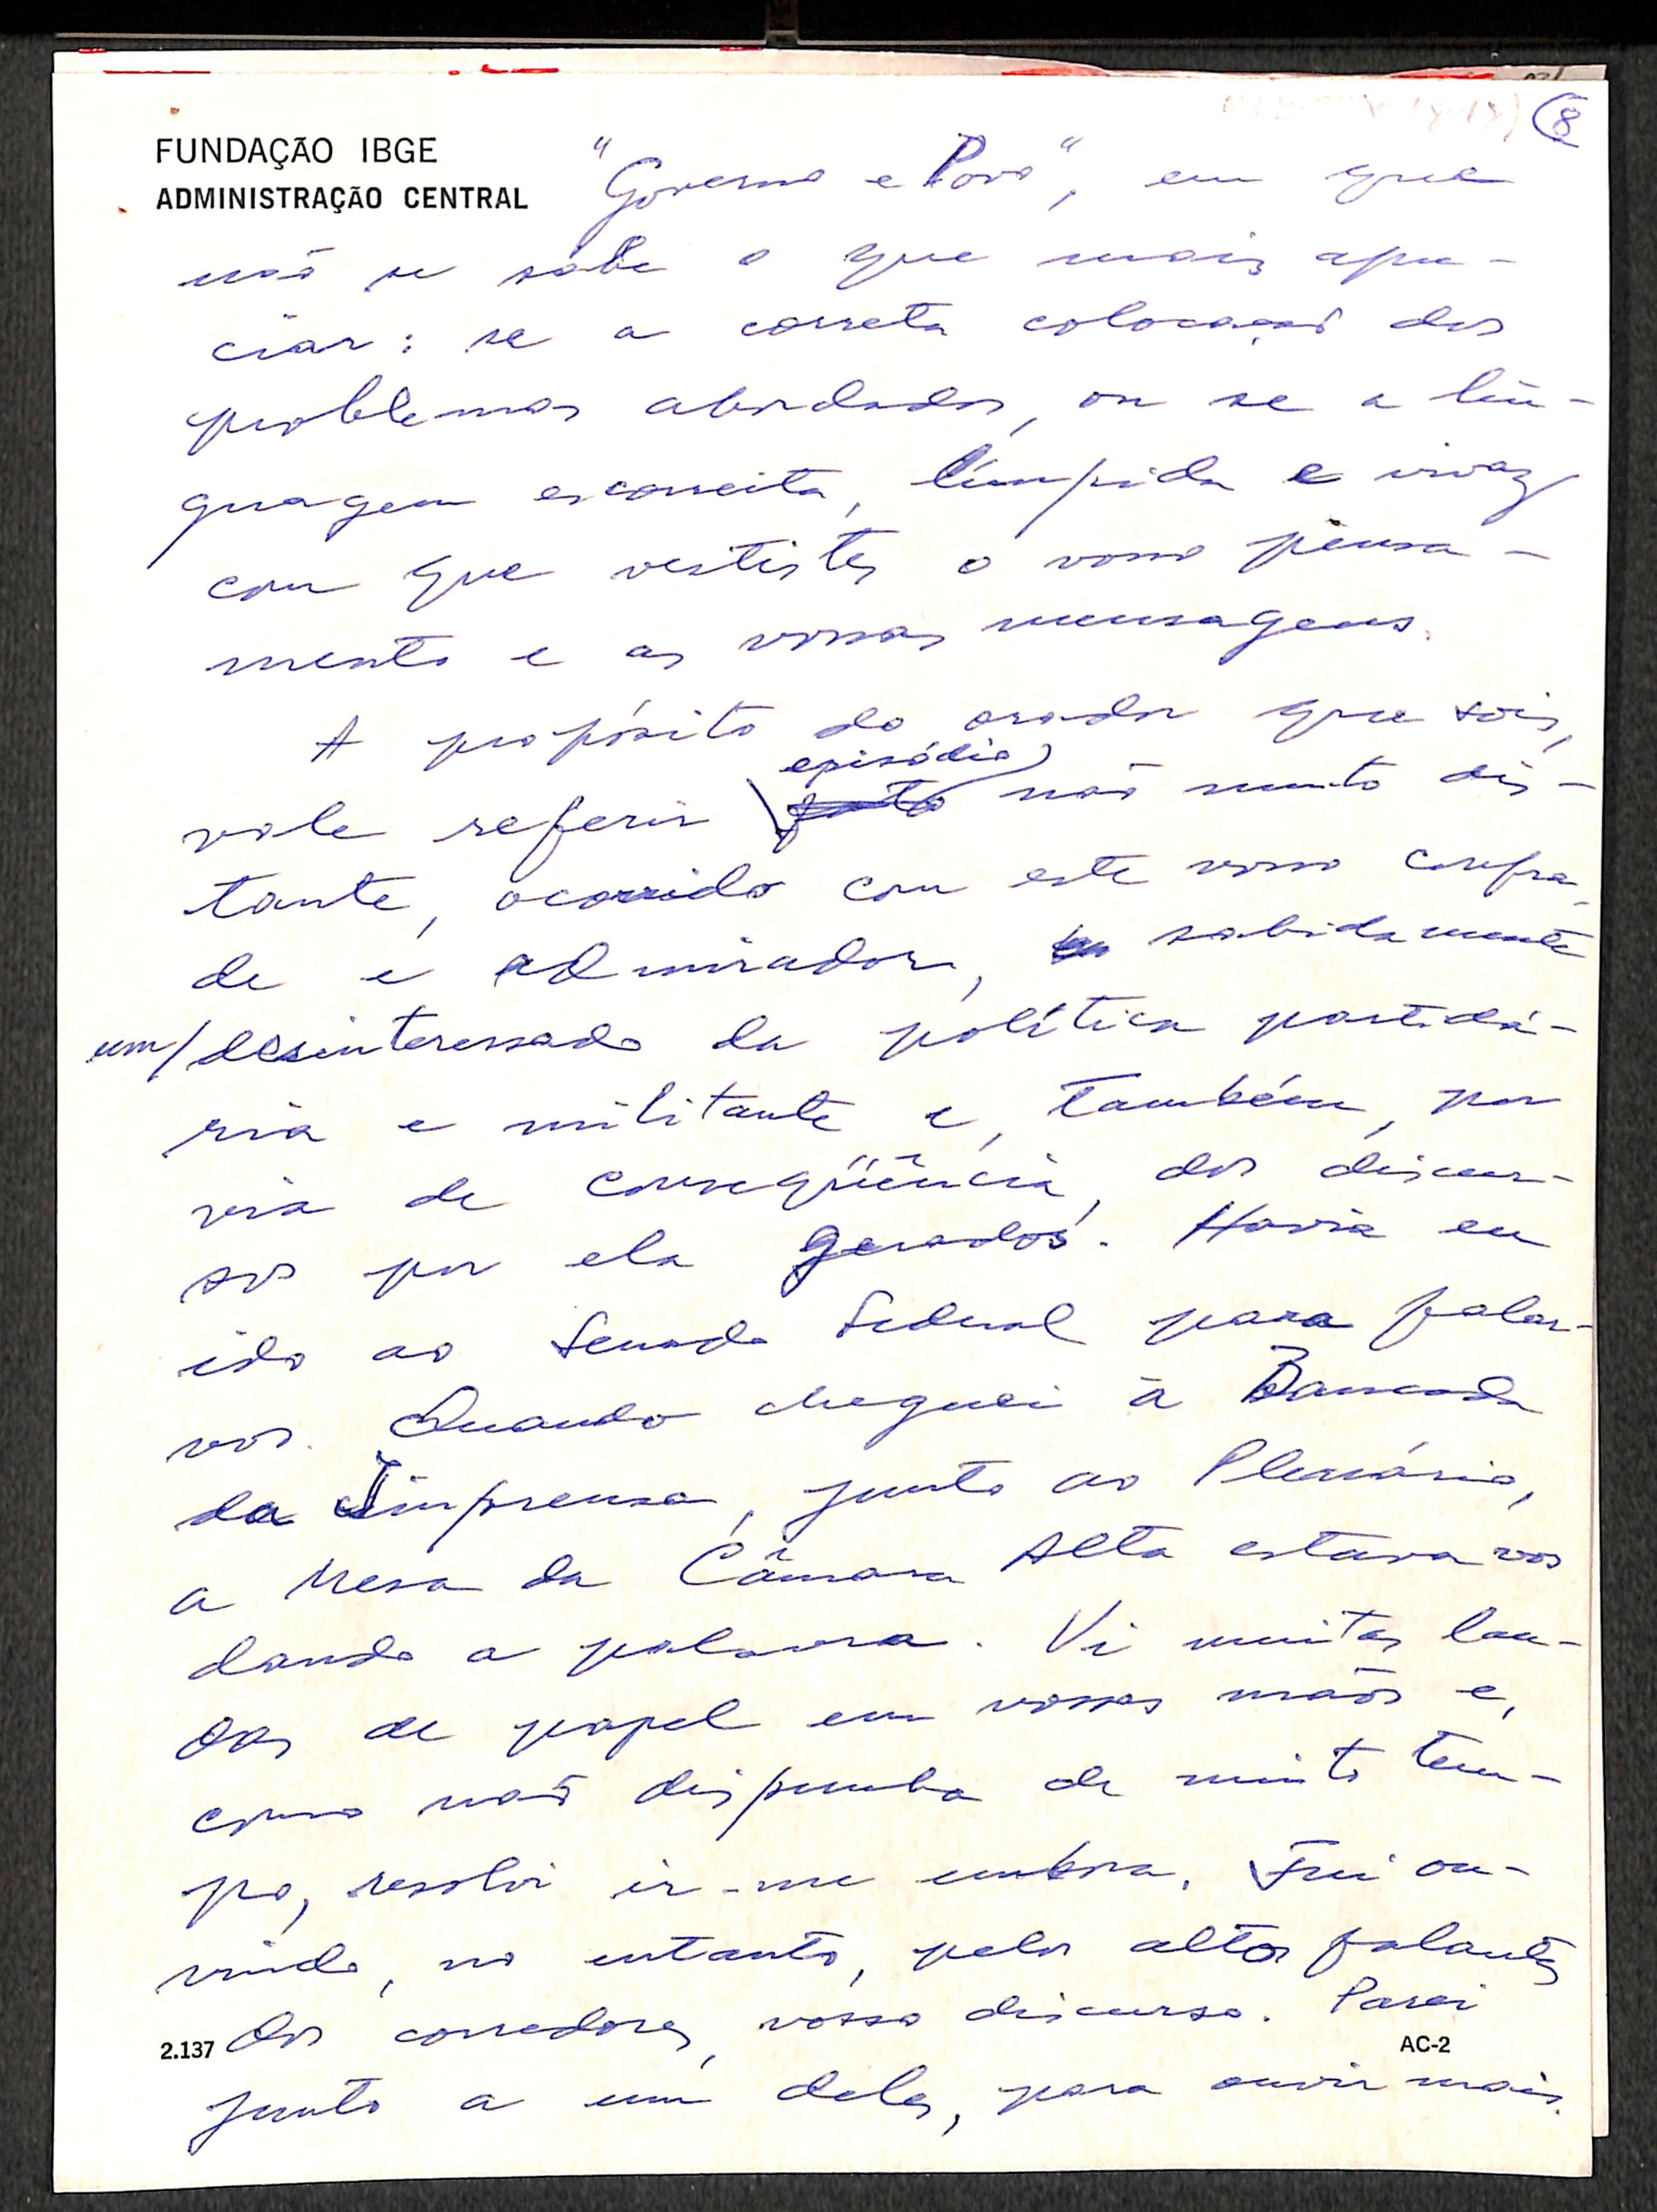 8
FUNDAÇÃO IBGE
ADMINISTRAÇÃO CENTRAL
"Governo e Povo", em que
não se sabe o que mais apre-
ciar: se a correta colocação dos
problemas abordados, ou se a lin-
guagem escorreita, límpida e vivaz
com que vestistes o vosso pensa-
mento e as vossas mensagens.
A propósito do orador que sois,
vale referir episódio não muito dis-
tante, ocorrido com este vosso confra-
de e admirador, sabidamente
um/desinteressado da política partidá-
ria e militante e, também, por
via de conseqüência, dos discur-
sos por ela gerados. Havia eu
ido ao Senado Federal para falar-
vos. Quando cheguei à Bancada
da Imprensa, junto ao Plenário,
a Mesa da Câmara Alta estava vos
dando a palavra. Vi muitas lau-
das de papel em vossas mãos e,
como não dispunha de muito tem-
po, resolvi ir-me embora. Fui ou-
vindo, no entanto, pelos altos falantes
dos corredores, vosso discurso. Parei
junto a um deles, para ouvir mais.
2.137
AC-2